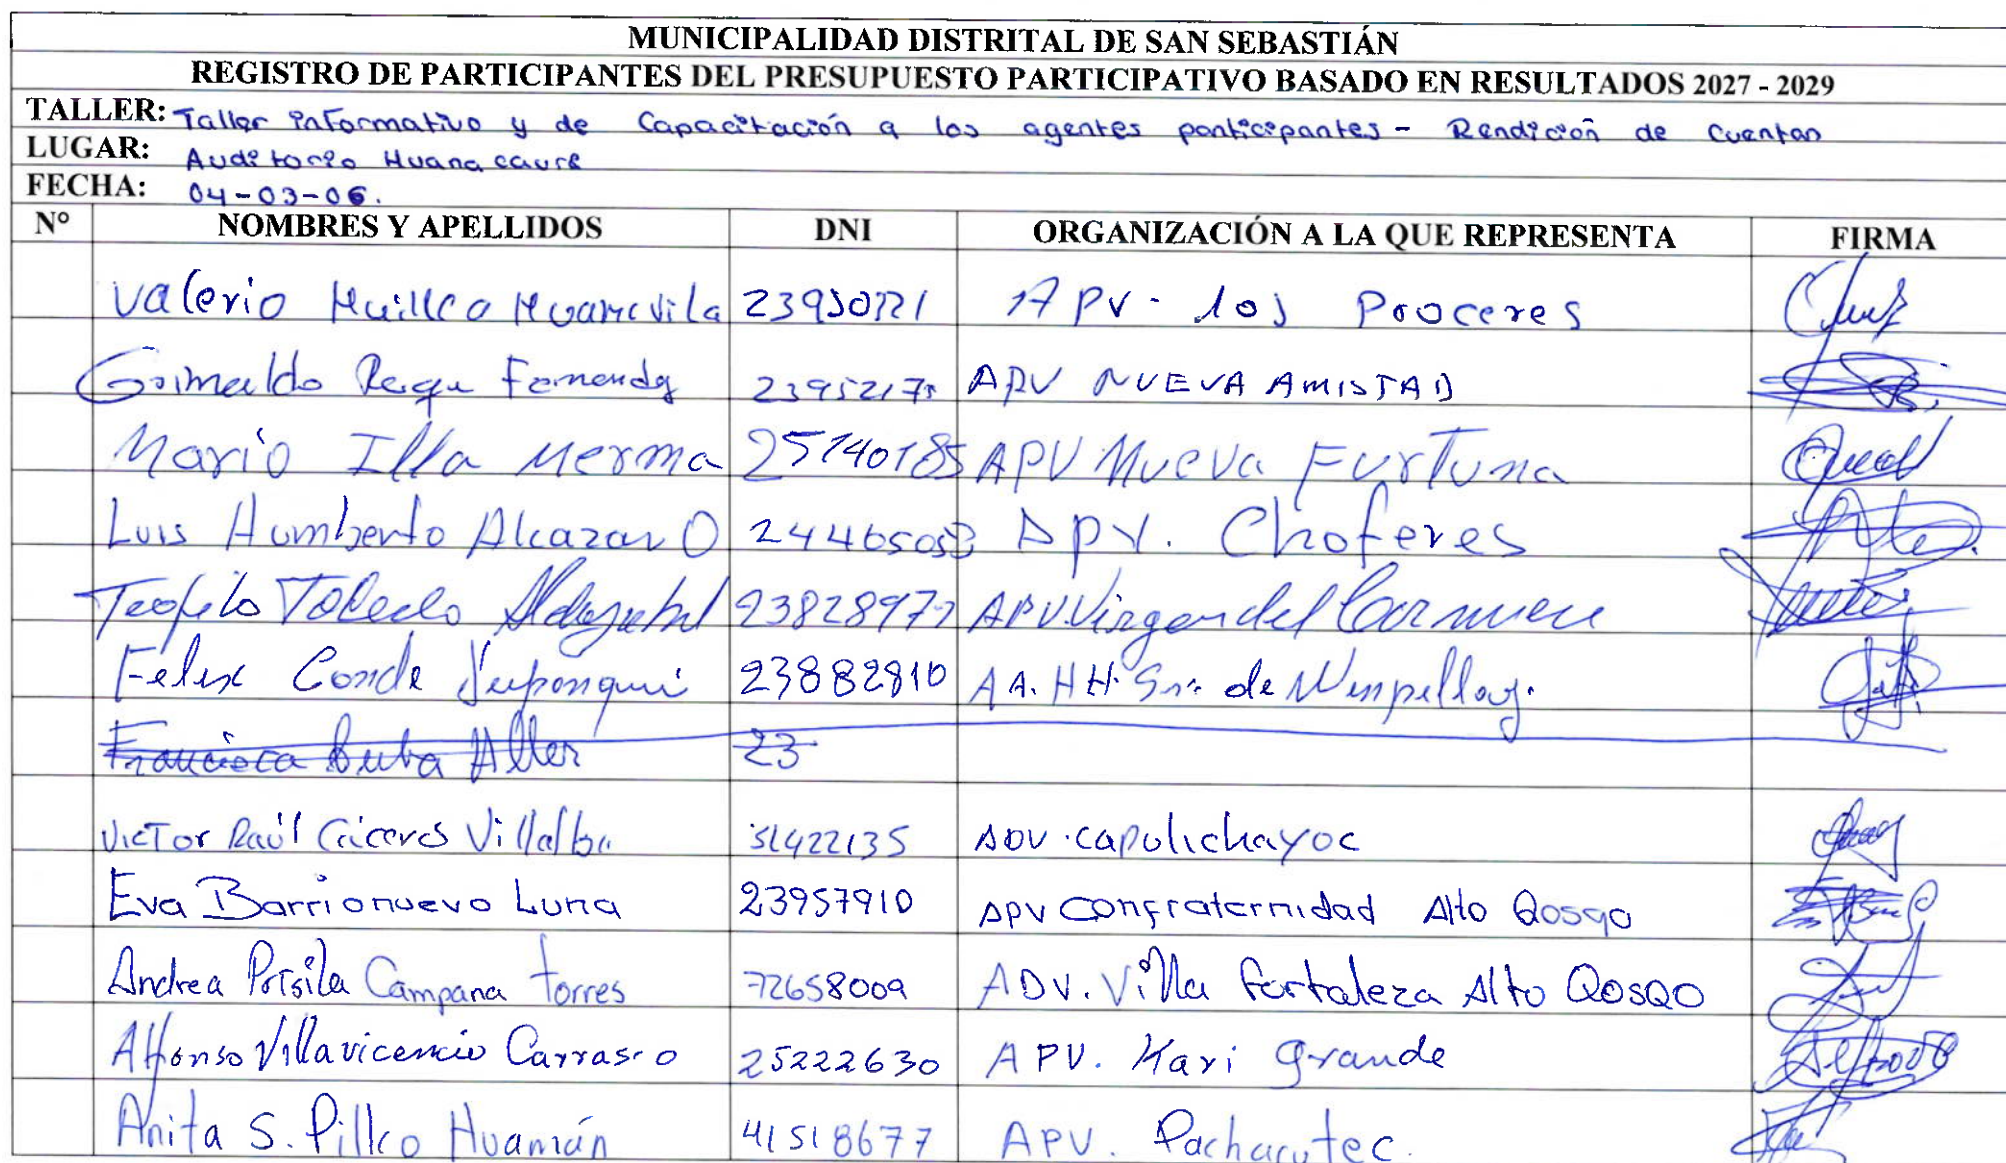 MUNICIPALIDAD DISTRITAL DE SAN SEBASTIÁN
REGISTRO DE PARTICIPANTES DEL PRESUPUESTO PARTICIPATIVO BASADO EN RESULTADOS 2027 - 2029
TALLER: Taller informativo y de Capacitación a los agentes participantes - Rendición de Cuentas
LUGAR: Auditorio Huanacaure
FECHA: 04-03-06.
N° NOMBRES Y APELLIDOS DNI ORGANIZACIÓN A LA QUE REPRESENTA FIRMA
Valerio Huillca Huamcvila APV - los Proceres
Grimaldo APV NUEVA AMISTAD
Mario Illa Merma 25740185 APV Nueva Furtuna
Luis Humberto Alcazar O APV. Choferes
Teofilo Toledo APV. Virgen del Carmen
Felix Conde 23882810 AA. HH. Sr. de
Francisca 23
Victor Raúl Cáceres Villalba 31422135 ADV. capolichayoc
Eva Barrionuevo Luna 23957910 APV Confraternidad Alto Qosqo
Andrea Prisila Campana torres 72658009 ADV. Villa fortaleza Alto QOSQO
Alfonso Villavicencio Carrasco 25222630 APV. Kari grande
Anita S. Pillco Huamán 41518677 APV. Pachacutec.